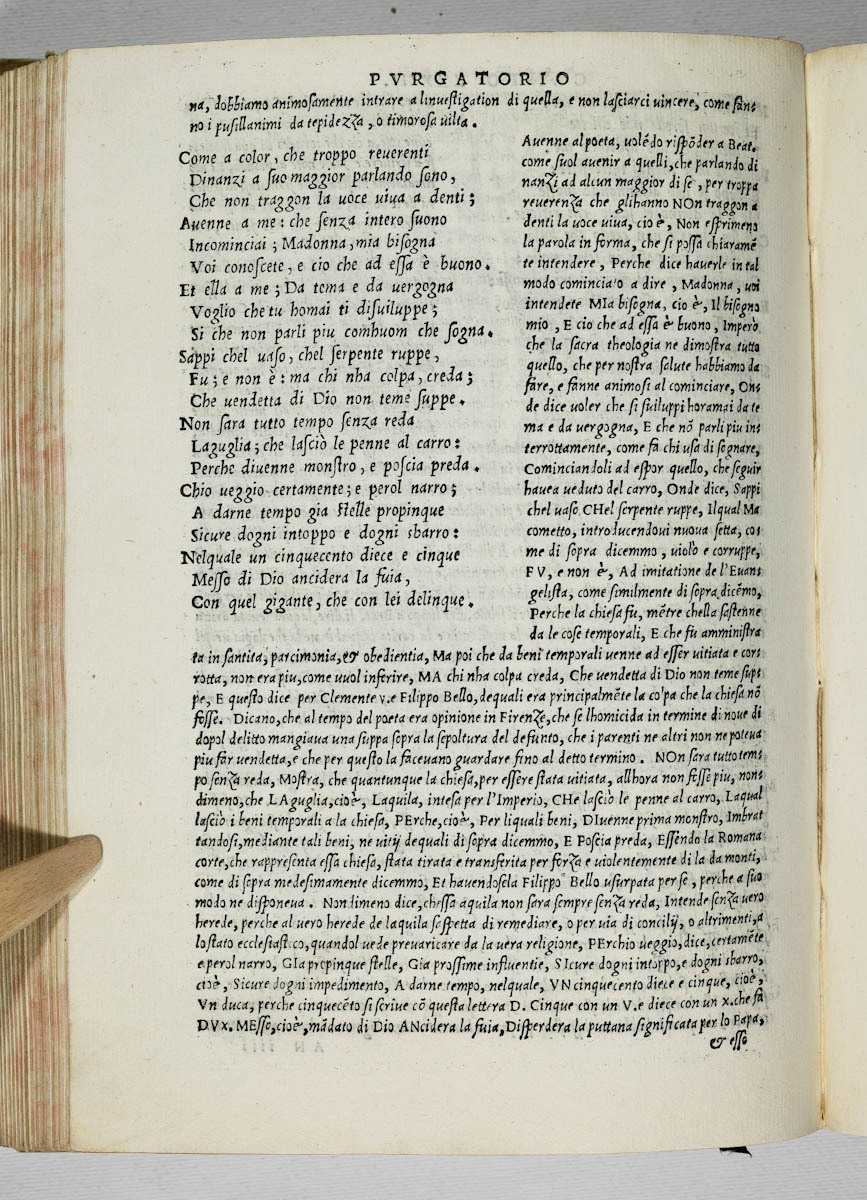 PVRGATORIO
na, dobbiamo animosamente intrare a linuestigation di quella, e non lasciarci uincere, come fan-
no i pusillanimi da tepidezza, o timorosa uilta.
Come a color, che troppo reuerenti
Dinanzi a suo maggior parlando sono,
Che non traggon la uoce uiua a denti;
Auenne a me: che senza intero suono
Incominciai; Madonna, mia bisogna
Voi conoscete, e cio che ad essa è buono.
Et ella a me; Da tema e da uergogna
Voglio che tu homai ti disuiluppe;
Si che non parli piu comhuom che sogna.
Sappi chel uaso, chel serpente ruppe,
Fu; e non è: ma chi nha colpa, creda;
Che uendetta di Dio non teme suppe.
Non sara tutto tempo senza reda
Laguglia; che lasciò le penne al carro:
Perche diuenne monstro, e poscia preda.
Chio ueggio certamente; e perol narro;
A darne tempo gia stelle propinque
Sicure dogni intoppo e dogni sbarro:
Nelquale un cinquecento diece e cinque
Messo di Dio anciderà la fuia,
Con quel gigante, che con lei delinque.
Auenne al poeta, uolédo rispōder a Beat.
come suol auenir a quelli, che parlando di
nanzi ad alcun maggior di se, per troppa
reuerenza che glihanno NOn traggon a
denti la uoce uiua, cio è, Non esprimeno
la parola in forma, che si possa chiaramē
te intendere, Perche dice hauerle in tal
modo cominciato a dire, Madonna, uoi
intendete MIa bisogna, cio è, Il bisogno
mio, E cio che ad essa è buono, Imperò
che la sacra theologia ne dimostra tutto
quello, che per nostra salute habbiamo da
fare, e fanne animosi al cominciare, On-
de dice uoler che si suiluppi horamai da te
ma e da uergogna, E che nō parli piu in-
terrottamente, come fa chi usa di sognare,
Cominciandoli ad espor quello, che seguir
hauea ueduto del carro, Onde dice, Sappi
chel uaso CHel serpente ruppe, Ilqual Ma
cometto, introducendoui nuoua setta, co-
me di sopra dicemmo, uiolò e corruppe,
FV, e non è, Ad imitatione de l'Euan-
gelista, come similmente di sopra dicēmo,
Perche la chiesa fu, mētre chella s'astenne
da le cose temporali, E che fu amministra
ta in santita, parcimonia, & obedientia, Ma poi che da beni temporali uenne ad esser uitiata e cor-
rotta, non era piu, come uuol inferire, MA chi nha colpa creda, Che uendetta di Dio non teme sup-
pe, E questo dice per Clemente v. e Filippo Bello, dequali era principalmēte la colpa che la chiesa nō
fesse. Dicano, che al tempo del poeta era opinione in Firenze, che se lhomicida in termine di noue dì
dopol delitto mangiaua una suppa sopra la sepoltura del defunto, che i parenti ne altri non ne poteua
piu far uendetta, e che per questo la faceuano guardare fino al detto termino. NOn sara tutto tem-
po senza reda, Mostra, che quantunque la chiesa, per essere stata uitiata, allhora non fesse piu, non-
dimeno, che LAguglia, cioè, Laquila, intesa per l'Imperio, CHe lasciò le penne al carro, Laqual
lasciò i beni temporali a la chiesa, PErche, cioè, Per liquali beni, DIuenne prima monstro, Imbrat
tandosi, mediante tali beni, ne uitij dequali di sopra dicemmo, E Poscia preda, Essendo la Romana
corte, che rappresenta essa chiesa, stata tirata e transferita per forza e uiolentemente di la da monti,
come di sopra medesimamente dicemmo, Et hauendosela Filippo Bello usurpata per se, perche a suo
modo ne disponeua. Nondimeno dice, chessa aquila non sara sempre senza reda, Intende senza uero
herede, perche al uero herede de laquila s'aspetta di remediare, o per uia di concilij, o altrimenti, a
lo stato ecclesiastico, quandol uede preuaricare da la uera religione, PErchio ueggio, dice, certamēte
e perol narro, GIa propinque stelle, Gia prossime influentie, SIcure dogni intoppo, e dogni sbarro,
cioè, Sicure dogni impedimento, A darne tempo, nelquale, VN cinquecento diece e cinque, cioè,
Vn duca, perche cinquecēto si scriue cō questa lettera D. Cinque con un V. e diece con un x. che fa
DVx. MEsso, cioè, mādato di Dio ANcidera la fuia, Disperdera la puttana significata per lo Papa,
& esso